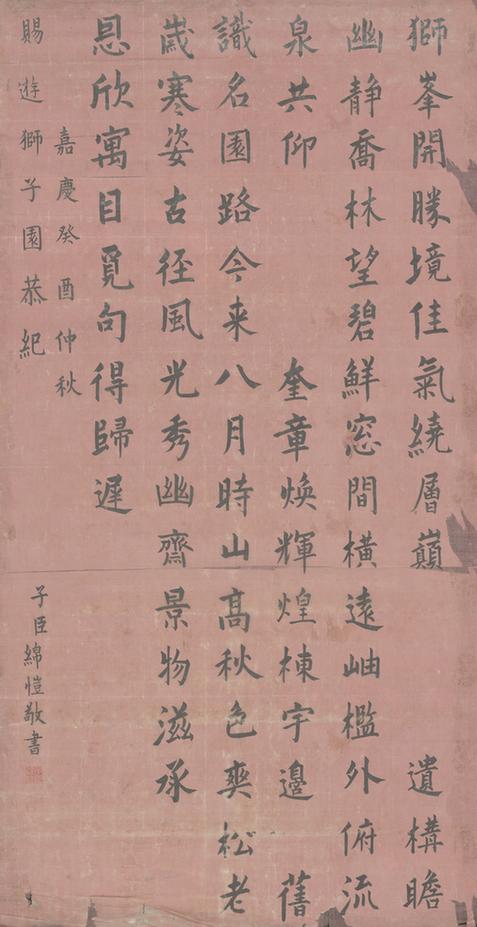 獅峯開勝境佳氣繞層巔 遺構瞻
幽靜喬林望碧鮮窓間橫遠岫檻外俯流
泉共仰 奎章煥輝煌棟宇邊 舊
識名園路今来八月時山髙秋色爽松老
歲寒姿古徑風光秀幽齋景物滋承
恩欣寓目覓句得歸遲
嘉慶癸酉仲秋
賜遊獅子園恭紀
子臣綿愷敬書